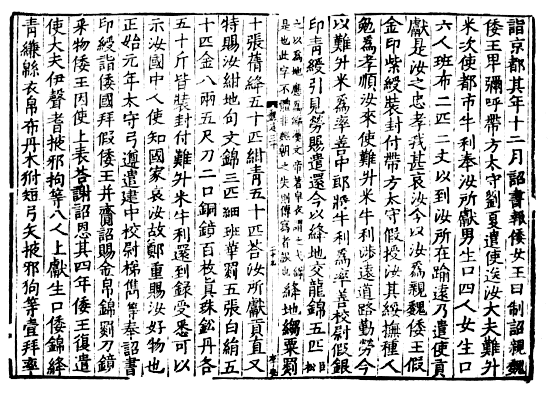 詣京都其年十二月詔書報倭女王曰制詔親魏
倭王卑彌呼帶方太守劉夏遣使送汝大夫難升
米次使都市牛利奉汝所獻男生口四人女生口
六人班布二匹二丈以到汝所在踰遠乃遣使貢
獻是汝之忠孝我甚哀汝今以汝爲親魏倭王假
金印紫綬裝封付帶方太守假授汝其綏撫種人
勉爲孝順汝來使難升米牛利涉遠道路勤勞今
以難升米爲率善中郎將牛利爲率善校尉假銀
印青綬引見勞賜遣還今以絳地交龍錦五匹臣松
之以爲地應爲綈漢文帝著皁衣謂之弋綈
是也此字不體非魏朝之失則傳寫者誤也
絳地縐粟罽
十張蒨絳五十匹紺青五十匹荅汝所獻貢直又
特賜汝紺地句文錦三匹細班華罽五張白絹五
十匹金八兩五尺刀二口銅鏡百枚真珠鈆丹各
五十斤皆裝封付難升米牛利還到錄受悉可以
示汝國中人使知國家哀汝故鄭重賜汝好物也
正始元年太守弓遵遣建中校尉梯儁等奉詔書
印綬詣倭國拜假倭王并齎詔賜金帛錦罽刀鏡
采物倭王因使上表荅謝詔恩其四年倭王復遣
使大夫伊聲耆掖邪狗等八人上獻生口倭錦絳
青縑緜衣帛布丹木附短弓矢掖邪狗等壹拜率